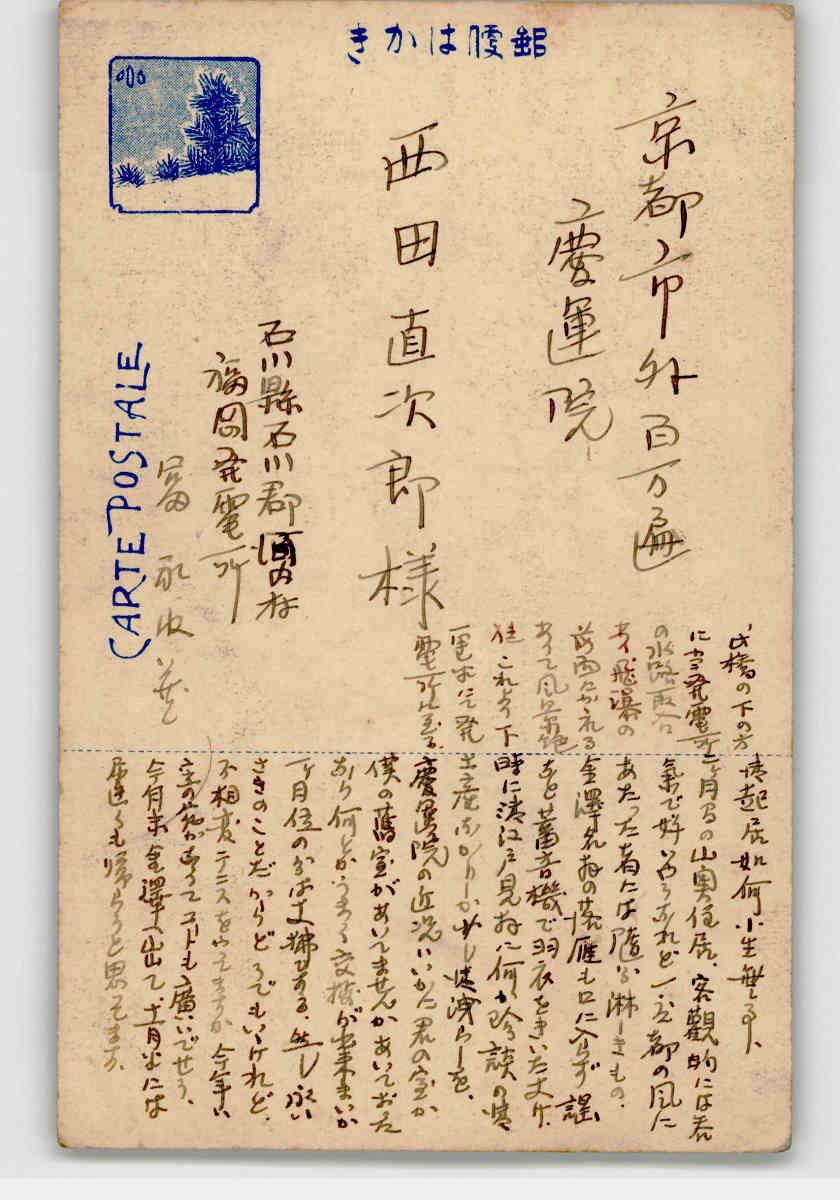 きかは便郵
京都市外百万遍
慶運院
西田直次郎様
石川縣石川郡河内村
福岡発電所
富永
CARTE POSTALE
橋の下の方
に当発電所
の水路取入口
あり飛瀑の
あつて風景絶
佳 これより下
一里半にて発
電所に至る
御起居如何 小生無事、
二ヶ月間の山奥住居、客観的には呑
氣で好いやうなれど一度都の風に
あたつた者には随分淋しきもの。
金澤名物の落雁も口に入らず 謡
など蓄音機で羽衣をきいた丈け、
時に清江戸見物に何か珍談の
土産なかりしか 少し
慶運院の近況いかに 君の室か
僕の舊室があいてませんか あいてをつた
なり何とかうまく交接が出来まいか
一ヶ月位の分は支拂ひする、然し永い
さきのことだからどうでもいいけれど、
不相変テニスをやつてますか 今年は
コートも廣いでせう、
今月末金澤へ出て、十一月半には
帰らうと思つてます、